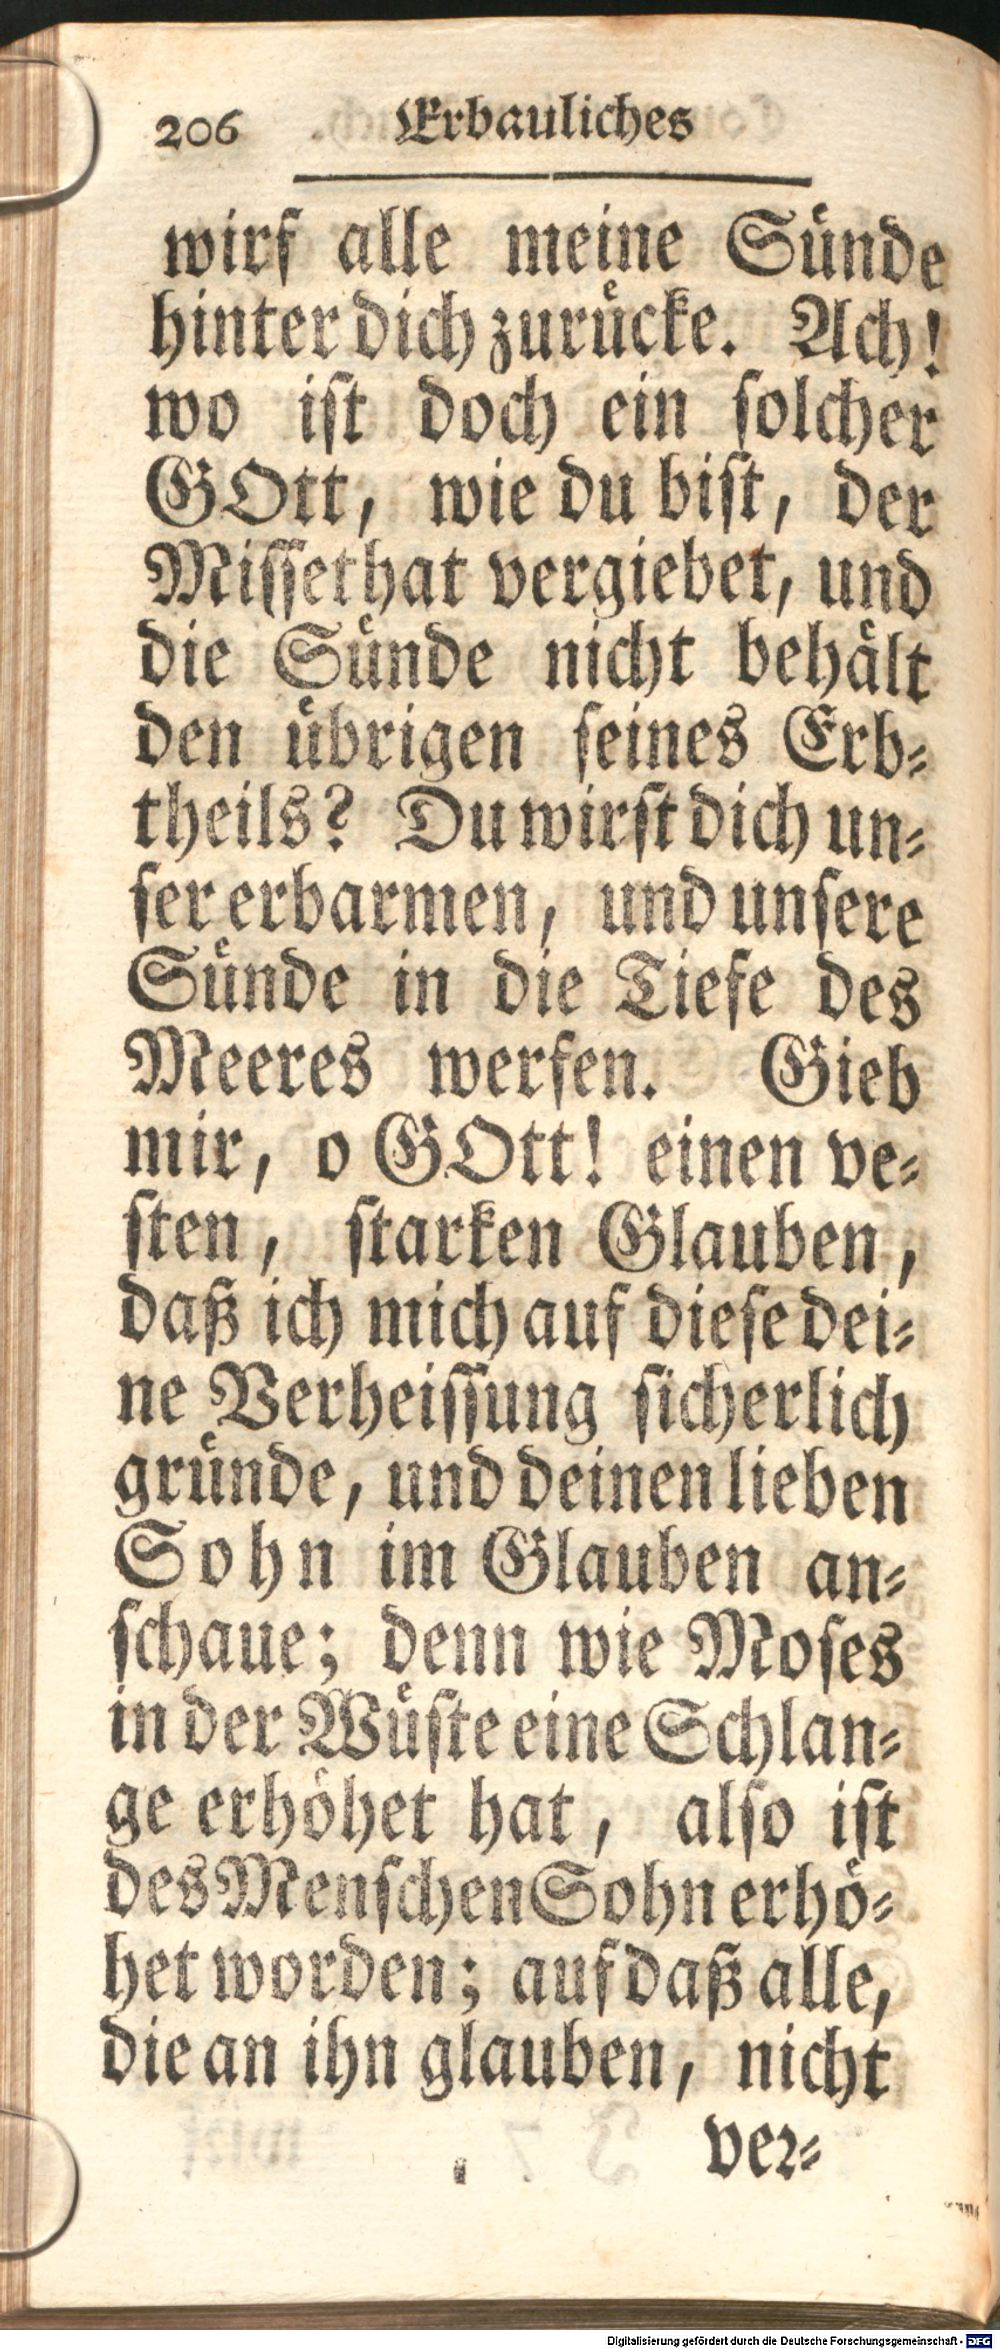 206 Erbauliches
wirf alle meine Sünde
hinter dich zurücke. Ach!
wo ist doch ein solcher
GOtt, wie du bist, der
Missethat vergiebet, und
die Sünde nicht behält
den übrigen seines Erb-
theils? Du wirst dich un-
ser erbarmen, und unsere
Sünde in die Tiefe des
Meeres werfen. Gieb
mir, o GOtt! einen ve-
sten, starken Glauben,
daß ich mich auf diese dei-
ne Verheissung sicherlich
gründe, und deinen lieben
Sohn im Glauben an-
schaue; denn wie Moses
in der Wüste eine Schlan-
ge erhöhet hat, also ist
des Menschen Sohn erhö-
het worden; auf daß alle,
die an ihn glauben, nicht
ver-
Digitalisierung gefördert durch die Deutsche Forschungsgemeinschaft - DFG